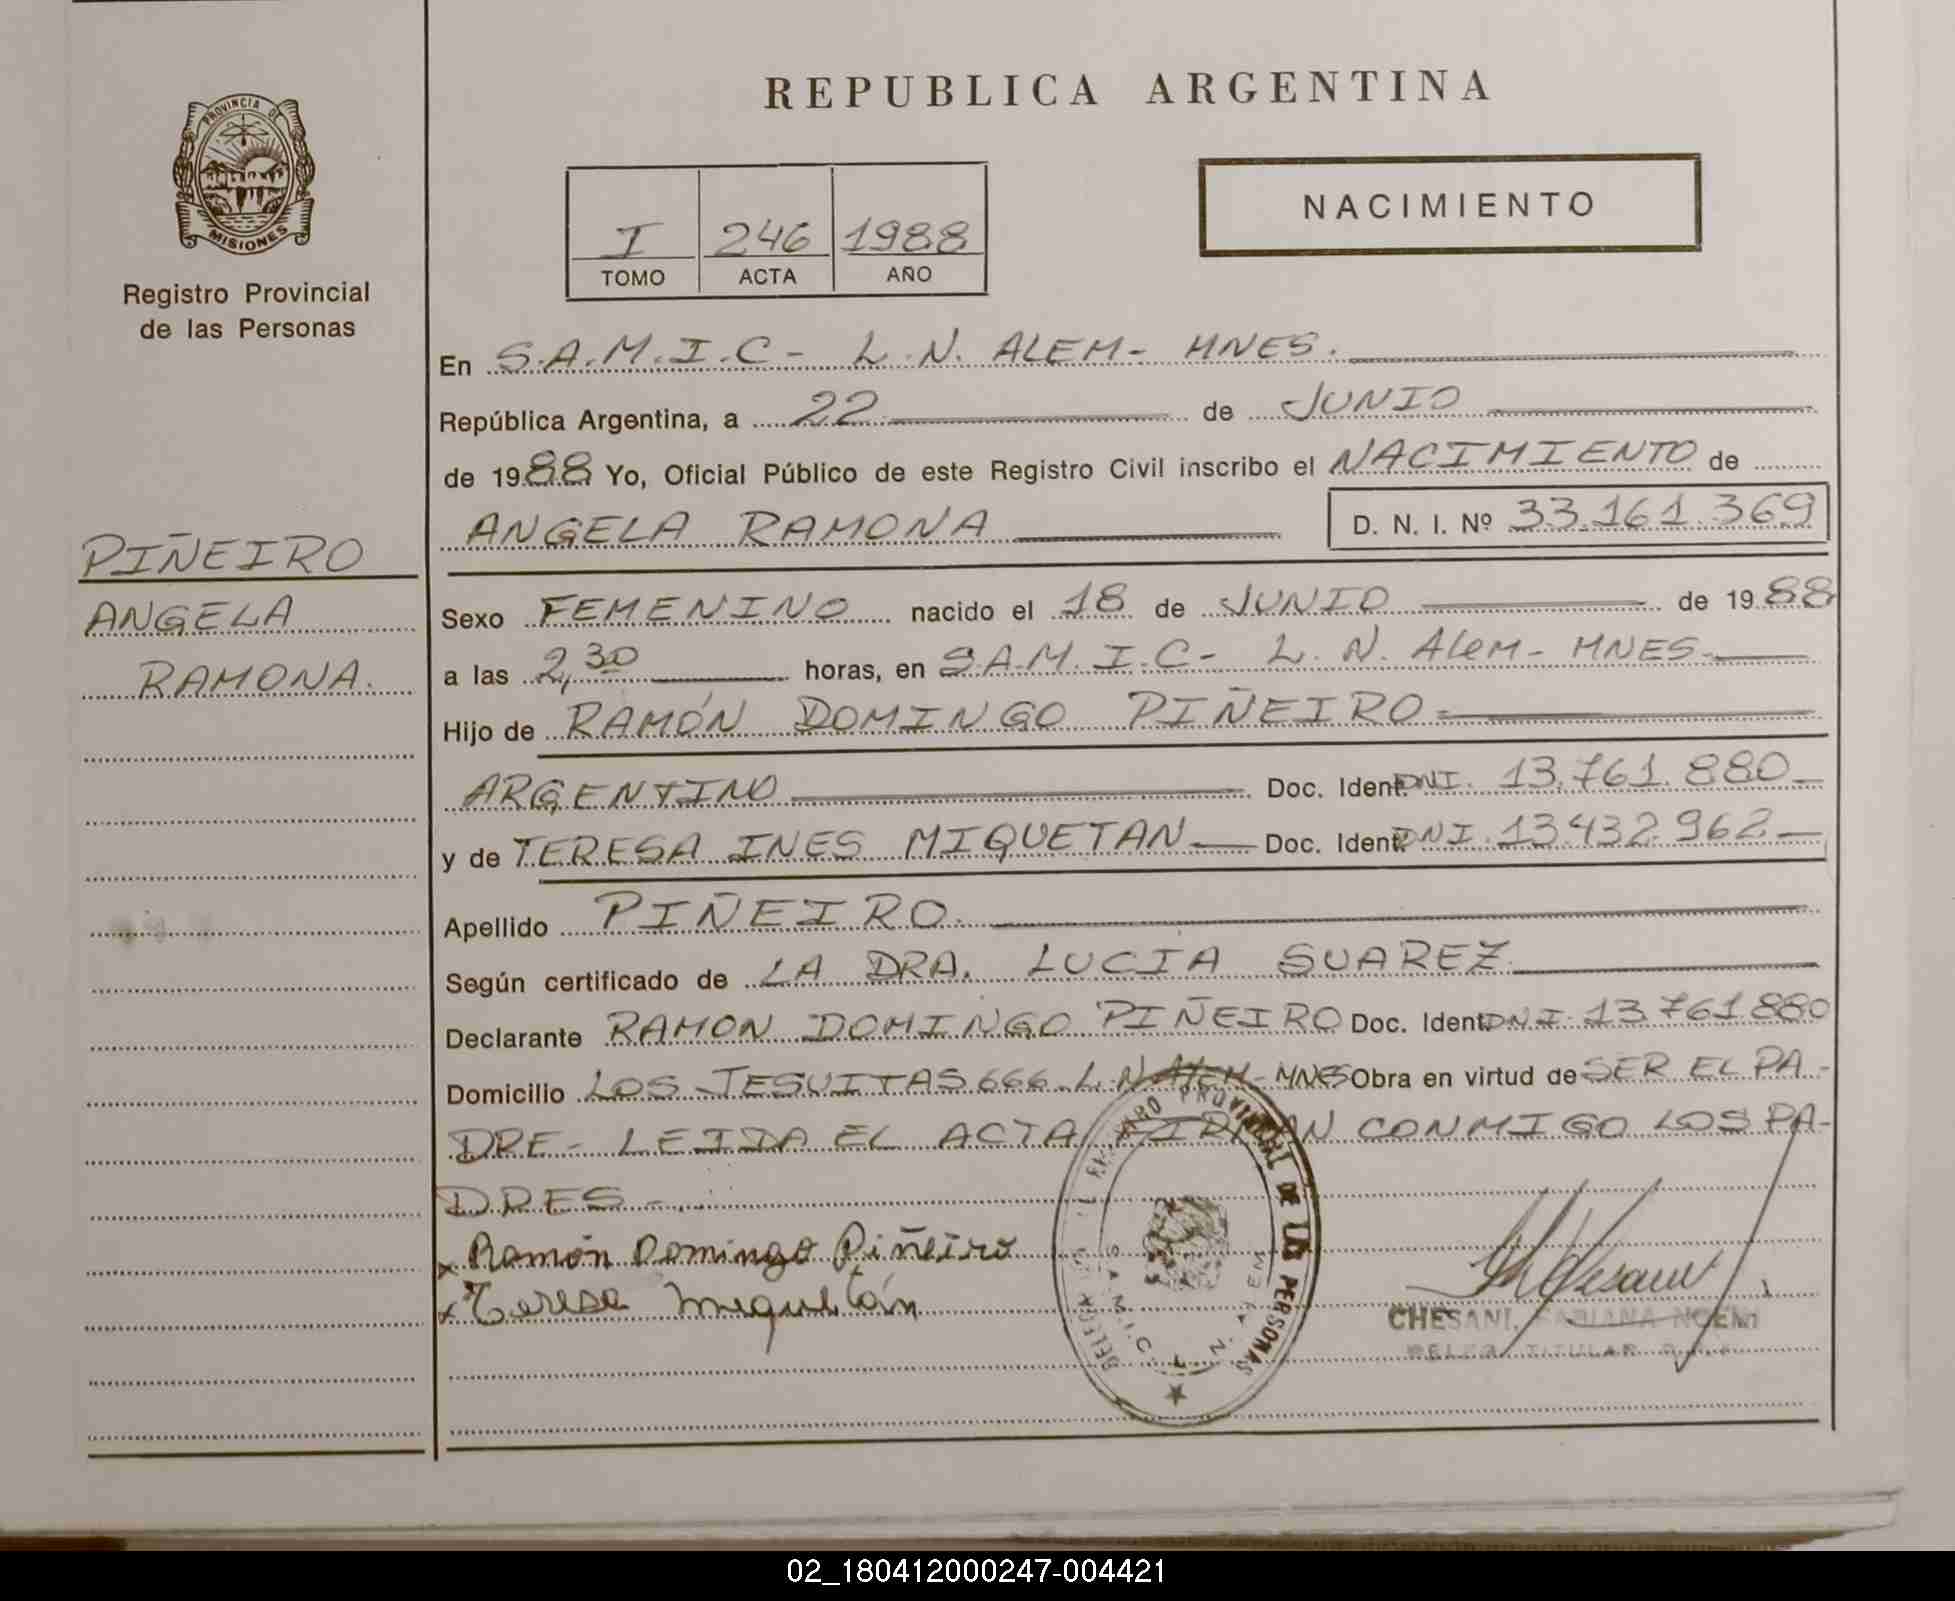 REPUBLICA ARGENTINA
PROVINCIA DE
MISIONES
Registro Provincial
de las Personas
I 246 1988
TOMO ACTA AÑO
NACIMIENTO
En S.A.M.I.C - L.N. ALEM - MNES.
República Argentina, a 22 de JUNIO
de 1988 Yo, Oficial Público de este Registro Civil inscribo el NACIMIENTO de
ANGELA RAMONA D. N. I. Nº 33.161.369
PIÑEIRO
ANGELA
RAMONA.
Sexo FEMENINO nacido el 18 de JUNIO de 1988
a las 2,30 horas, en S.A.M.I.C - L. N. Alem - MNES
Hijo de RAMÓN DOMINGO PIÑEIRO
ARGENTINO Doc. Ident. DNI. 13.761.880
y de TERESA INES MIQUETAN Doc. Ident. DNI. 13.432.962
Apellido PIÑEIRO.
Según certificado de LA DRA. LUCIA SUAREZ
Declarante RAMON DOMINGO PIÑEIRO Doc. Ident. DNI 13.761880
Domicilio LOS JESUITAS 666 L.N ALEM - MNES Obra en virtud de SER EL PA-
DRE - LEIDA EL ACTA FIRMAN CONMIGO LOS PA-
DRES -
x Ramón Domingo Piñeiro
x Teresa Miquetán
PROVINCIAL DE LAS PERSONAS
S.A.M.I.C. L. N. ALEM
CHESANI, FABIANA NOEMI
TITULAR
02_180412000247-004421